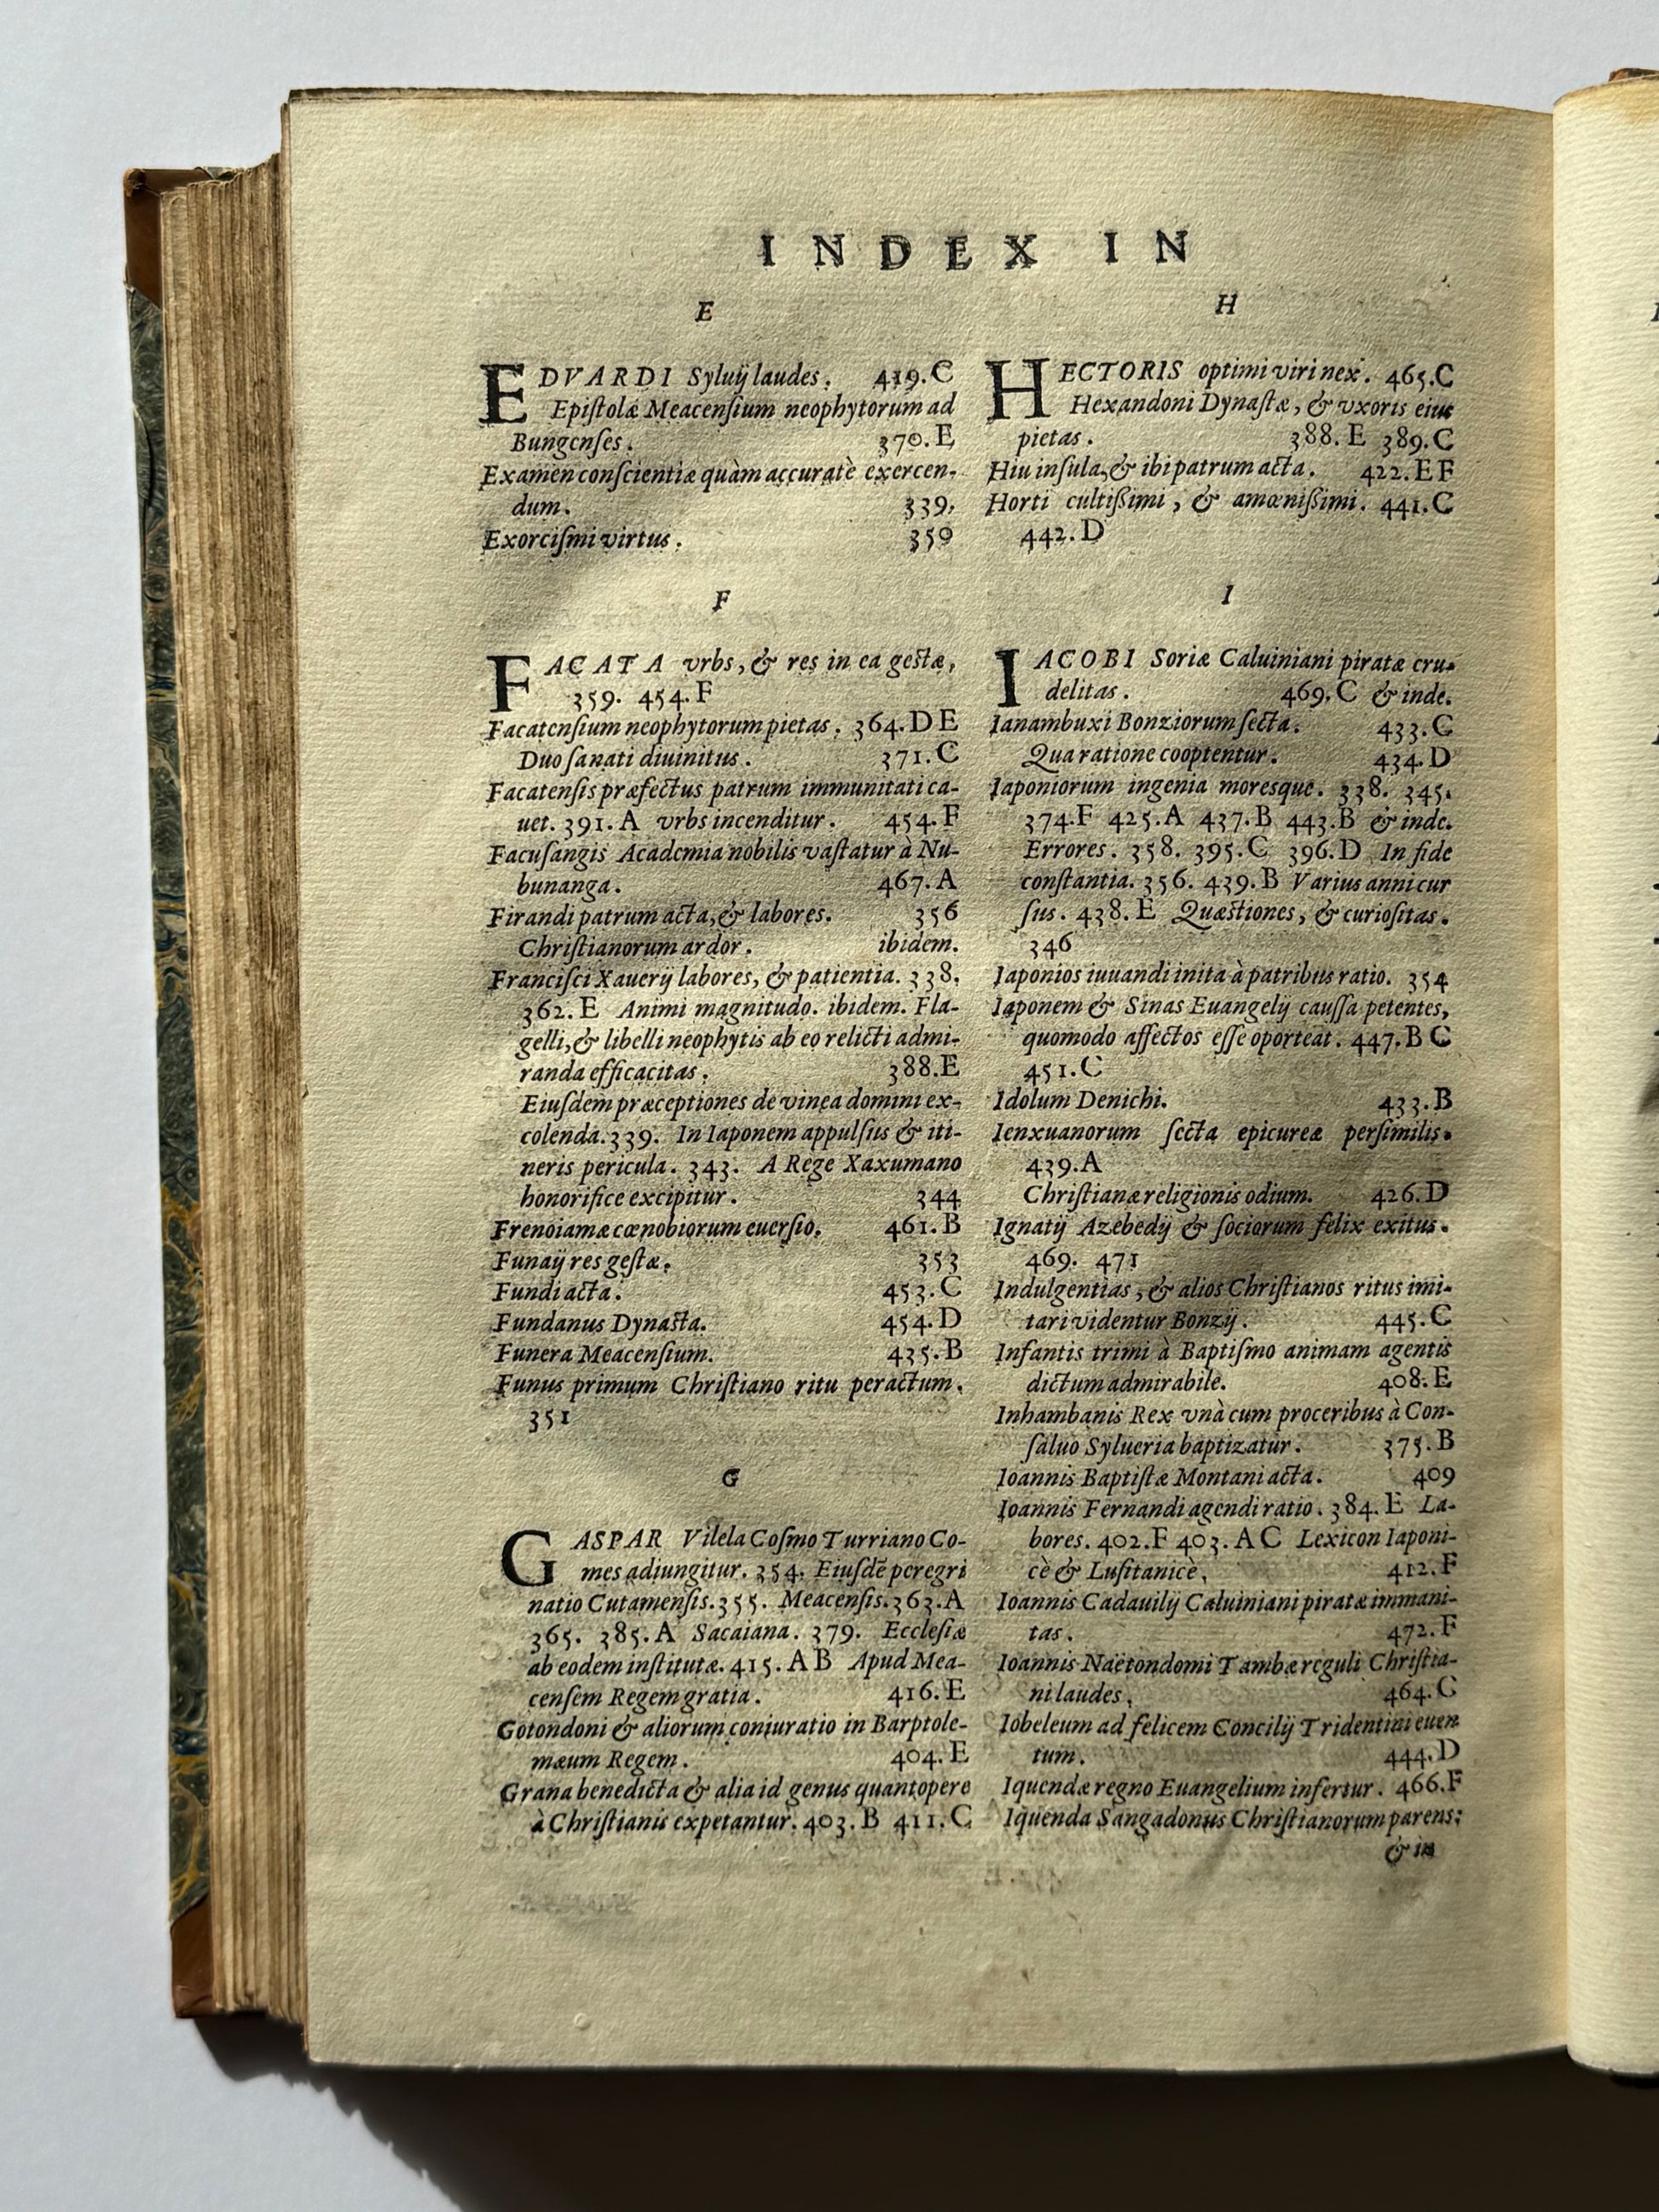 INDEX IN
E
EDVARDI Syluij laudes. 419.C
Epiſtolæ Meacenſium neophytorum ad
Bungenſes. 370.E
Examen conſcientiæ quàm accuratè exercen-
dum. 339.
Exorciſmi virtus. 359
F
FACATA vrbs, & res in ea geſtæ,
359. 454.F
Facatenſium neophytorum pietas. 364.D E
Duo ſanati diuinitus. 371.C
Facatenſis præfectus patrum immunitati ca-
uet. 391.A vrbs incenditur. 454.F
Facuſangis Academia nobilis vaſtatur à Nu-
bunanga. 467.A
Firandi patrum acta, & labores. 356
Chriſtianorum ardor. ibidem.
Franciſci Xauerij labores, & patientia. 338.
362.E Animi magnitudo. ibidem. Fla-
gelli, & libelli neophytis ab eo relicti admi-
randa efficacitas. 388.E
Eiuſdem præceptiones de vinea domini ex-
colenda. 339. In Iaponem appulſus & iti-
neris pericula. 343. A Rege Xaxumano
honorifice excipitur. 344
Frenoiamæ cœnobiorum euerſio. 461.B
Funaij res geſtæ. 353
Fundi acta. 453.C
Fundanus Dynaſta. 454.D
Funera Meacenſium. 435.B
Funus primum Chriſtiano ritu peractum.
351
G
GASPAR Vilela Coſmo Turriano Co-
mes adiungitur. 354. Eiuſdē peregri
natio Cutamenſis. 355. Meacenſis. 363.A
365. 385.A Sacaiana. 379. Eccleſiæ
ab eodem inſtitutæ. 415.A B Apud Mea-
cenſem Regem gratia. 416.E
Gotondoni & aliorum coniuratio in Barptole-
mæum Regem. 404.E
Grana benedicta & alia id genus quantopere
à Chriſtianis expetantur. 403.B 411.C
H
HECTORIS optimi viri nex. 465.C
Hexandoni Dynaſtæ, & vxoris eius
pietas. 388.E 389.C
Hiu inſula, & ibi patrum acta. 422.E F
Horti cultißimi, & amœnißimi. 441.C
442.D
I
IACOBI Soriæ Caluiniani piratæ cru-
delitas. 469.C & inde.
Ianambuxi Bonziorum ſecta. 433.C
Qua ratione cooptentur. 434.D
Iaponiorum ingenia moresque. 338. 345.
374.F 425.A 437.B 443.B & inde.
Errores. 358. 395.C 396.D In fide
conſtantia. 356. 439.B Varius anni cur
ſus. 438.E Quæſtiones, & curioſitas.
346
Iaponios iuuandi inita à patribus ratio. 354
Iaponem & Sinas Euangelij cauſſa petentes,
quomodo affectos eſſe oporteat. 447.B C
451.C
Idolum Denichi. 433.B
Ienxuanorum ſecta epicureæ perſimilis.
439.A
Chriſtianæ religionis odium. 426.D
Ignatij Azebedij & ſociorum felix exitus.
469. 471
Indulgentias, & alios Chriſtianos ritus imi-
tari videntur Bonzij. 445.C
Infantis trimi à Baptiſmo animam agentis
dictum admirabile. 408.E
Inhambanis Rex vnà cum proceribus à Con-
ſaluo Sylueria baptizatur. 375.B
Ioannis Baptiſtæ Montani acta. 409
Ioannis Fernandi agendi ratio. 384.E La-
bores. 402.F 403.A C Lexicon Iaponi-
cè & Luſitanicè. 412.F
Ioannis Cadauilij Caluiniani piratæ immani-
tas. 472.F
Ioannis Naëtondomi Tambæ reguli Chriſtia-
ni laudes. 464.C
Iobeleum ad felicem Concilij Tridentini euen
tum. 444.D
Iquendæ regno Euangelium infertur. 466.F
Iquenda Sangadonus Chriſtianorum parens;
& in